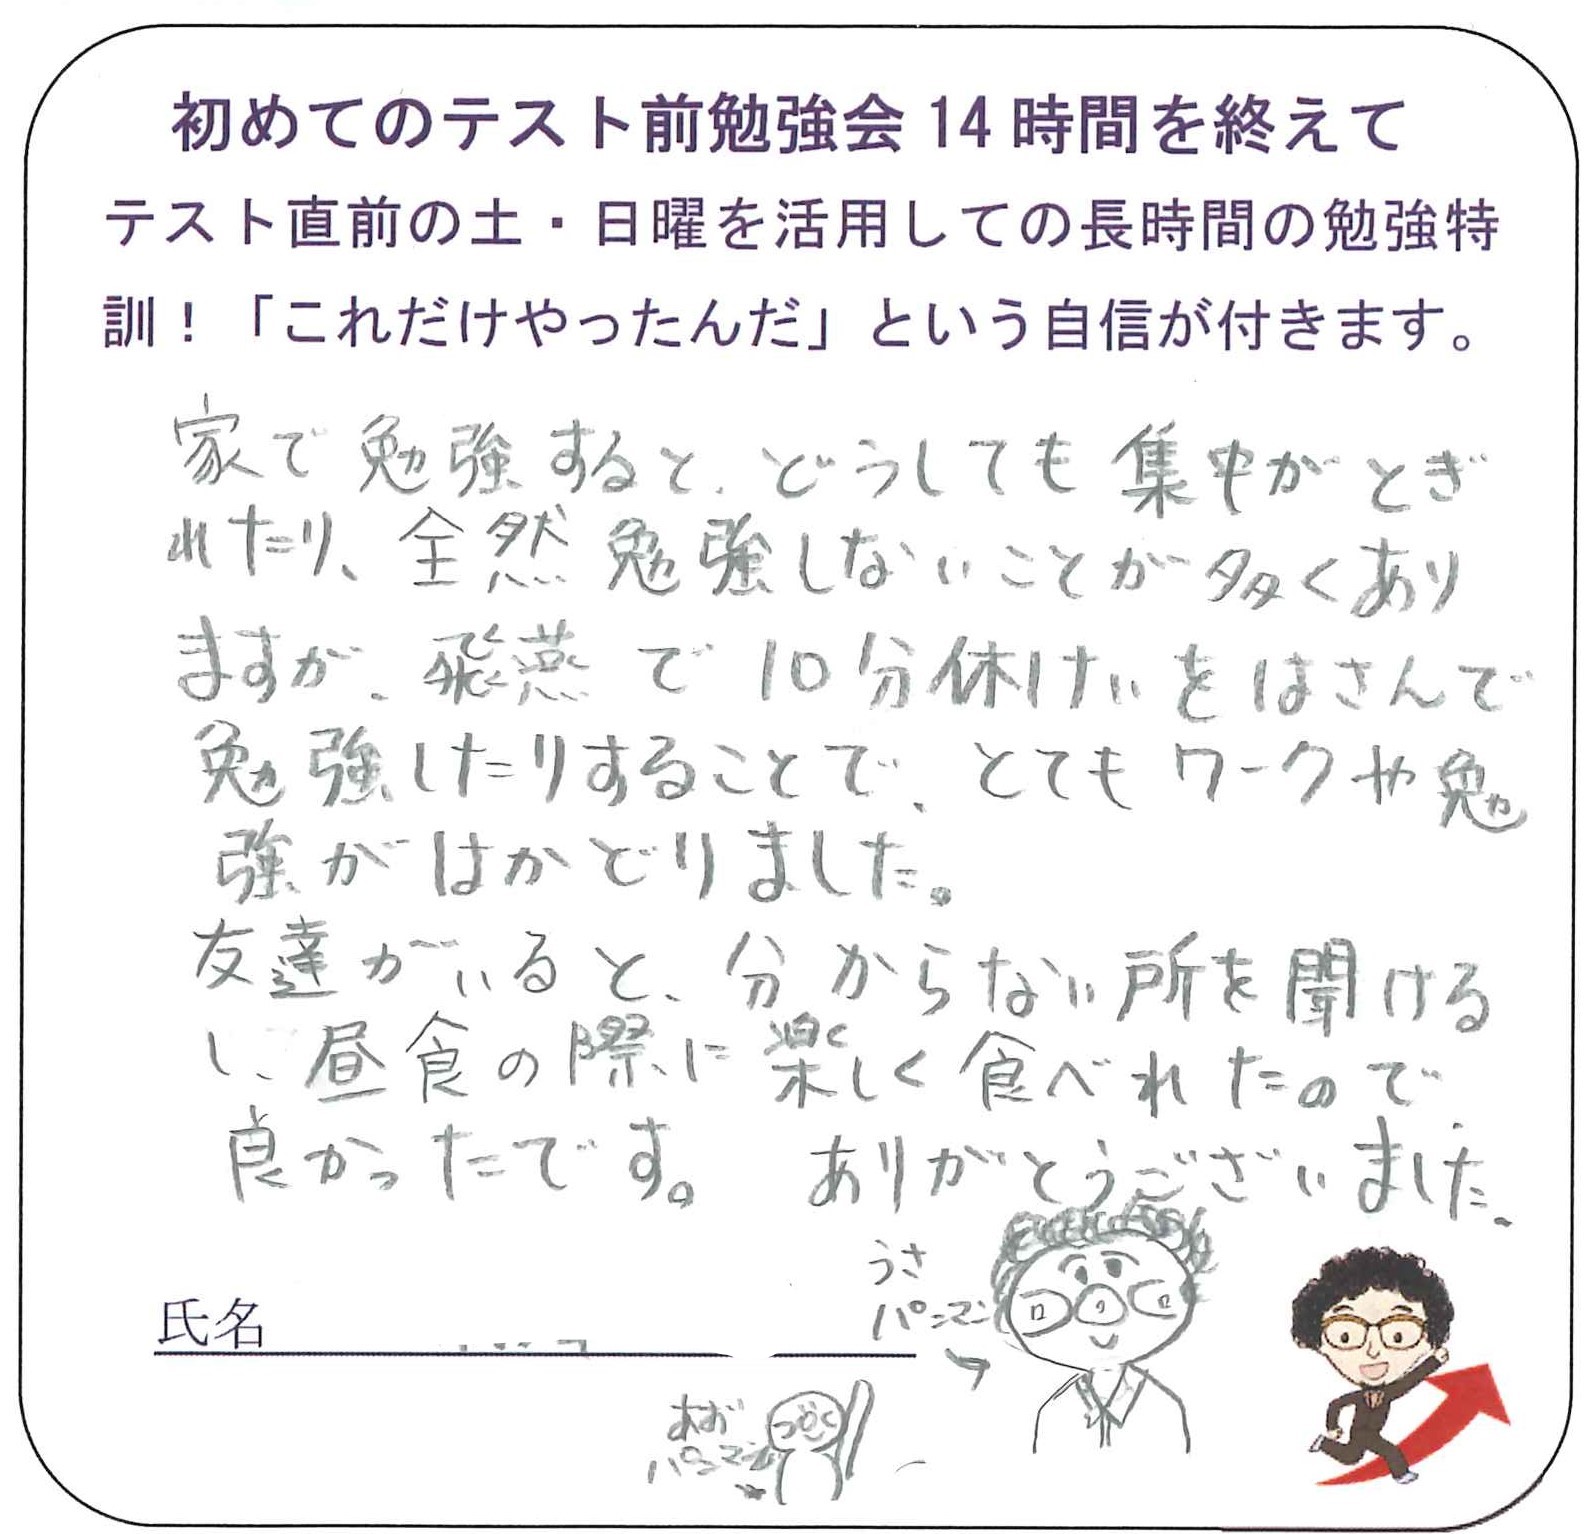 初めてのテスト前勉強会14時間を終えて
テスト直前の土・日曜を活用しての長時間の勉強特
訓！「これだけやったんだ」という自信が付きます。
家で勉強すると、どうしても集中がとぎ
れたり、全然勉強しないことが多くあり
ますが、飛燕で10分休けいをはさんで
勉強したりすることで、とてもワークや勉
強がはかどりました。
友達がいると、分からない所を聞ける
し、昼食の際に楽しく食べれたので
良かったです。 ありがとうございました。
うさ
パンマン
氏名
あお
パンマン